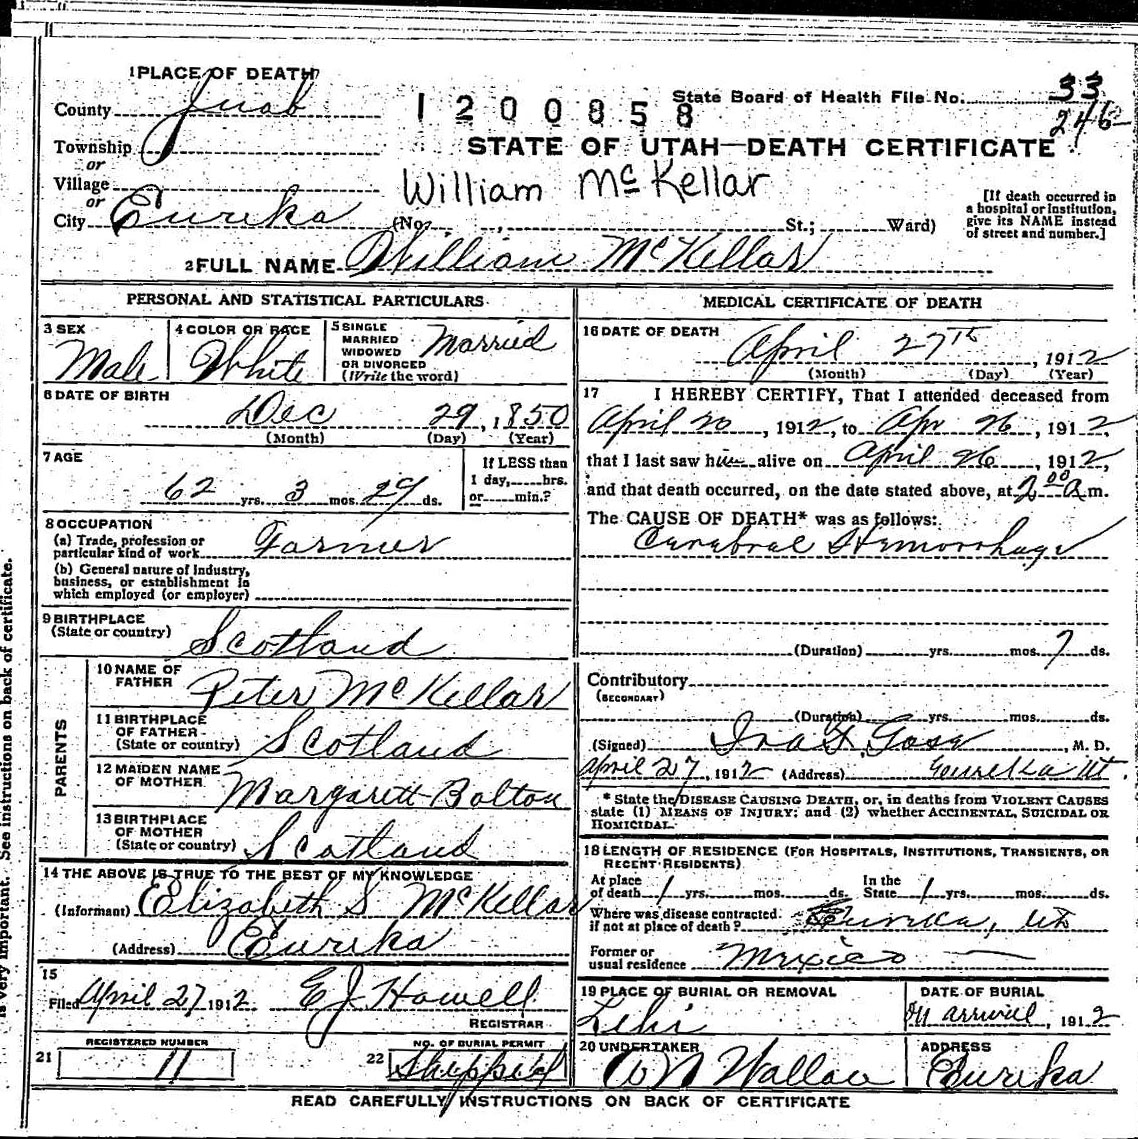 1 PLACE OF DEATH
County Juab
1200858
State Board of Health File No. 33
246
Township
or
STATE OF UTAH—DEATH CERTIFICATE
Village
or
William McKellar
City Eureka (No. , St.; Ward)
[If death occurred in a hospital or institution, give its NAME instead of street and number.]
2 FULL NAME William McKellar
PERSONAL AND STATISTICAL PARTICULARS
3 SEX Male
4 COLOR OR RACE White
5 SINGLE MARRIED WIDOWED OR DIVORCED (Write the word) Married
6 DATE OF BIRTH
Dec 29, 1850
(Month) (Day) (Year)
7 AGE
62 yrs. 3 mos. 29 ds.
If LESS than 1 day, hrs. or min.?
8 OCCUPATION
(a) Trade, profession or particular kind of work Farmer
(b) General nature of Industry, business, or establishment in which employed (or employer)
9 BIRTHPLACE
(State or country) Scotland
PARENTS
10 NAME OF FATHER Peter McKellar
11 BIRTHPLACE OF FATHER (State or country) Scotland
12 MAIDEN NAME OF MOTHER Margarett Bolton
13 BIRTHPLACE OF MOTHER (State or country) Scotland
14 THE ABOVE IS TRUE TO THE BEST OF MY KNOWLEDGE
(Informant) Elizabeth S McKellar
(Address) Eureka
15
Filed April 27, 1912 E J Howell
REGISTRAR
21 REGISTERED NUMBER 11
22 NO. OF BURIAL PERMIT Shipped
MEDICAL CERTIFICATE OF DEATH
16 DATE OF DEATH
April 27th, 1912
(Month) (Day) (Year)
17 I HEREBY CERTIFY, That I attended deceased from
April 20, 1912, to Apr 26, 1912,
that I last saw him alive on April 26, 1912,
and that death occurred, on the date stated above, at 2 00 a m.
The CAUSE OF DEATH* was as follows:
Cerebral Hemorrhage
(Duration) yrs. mos. 7 ds.
Contributory
(SECONDARY)
(Duration) yrs. mos. ds.
(Signed) Ira F. M. D.
April 27, 1912 (Address) Eureka Ut.
* State the DISEASE CAUSING DEATH, or, in deaths from VIOLENT CAUSES
state (1) MEANS OF INJURY; and (2) whether ACCIDENTAL, SUICIDAL OR
HOMICIDAL.
18 LENGTH OF RESIDENCE (FOR HOSPITALS, INSTITUTIONS, TRANSIENTS, OR
RECENT RESIDENTS)
At place of death 1 yrs. mos. ds. In the State 1 yrs. mos. ds.
Where was disease contracted if not at place of death? Eureka, Ut
Former or usual residence Mexico
19 PLACE OF BURIAL OR REMOVAL Lehi
DATE OF BURIAL
on arrival, 1912
20 UNDERTAKER Wallace
ADDRESS Eureka
READ CAREFULLY INSTRUCTIONS ON BACK OF CERTIFICATE
is very important. See instructions on back of certificate.